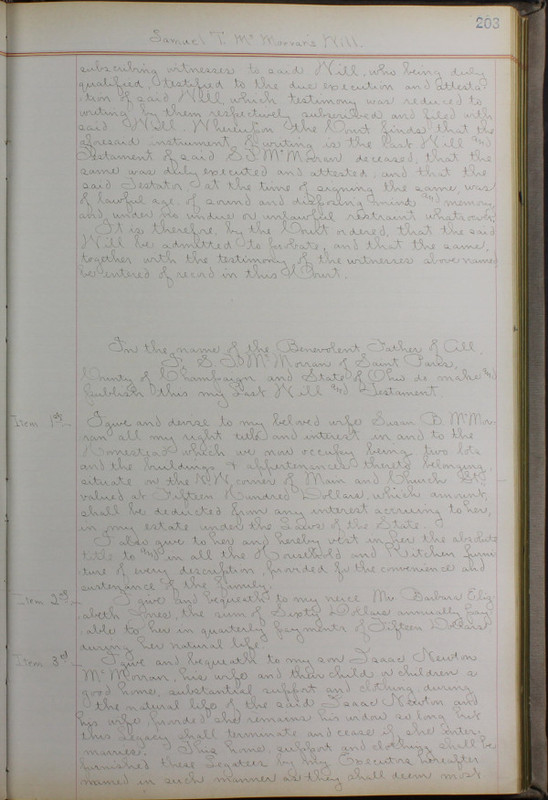 203
Samuel T. McMorran's Will.
subscribing witnesses to said Will, who being duly
qualified, testified to the due execution and attesta-
tion of said Will, which testimony was reduced to
writing by them respectively subscribed and filed with
said Will. Whereupon the Court finds that the
aforesaid instrument of writing is the last Will and
Testament of said S. T. McMorran deceased, that the
same was duly executed and attested, and that the
said Testator at the time of signing the same, was
of lawful age, of sound and disposing mind and memory
and under no undue or unlawful restraint whatsoever.
It is therefore, by the Court ordered, that the said
Will be admitted to probate, and that the same,
together with the testimony of the witnesses above named
be entered of record in this Court.
In the name of the Benevolent Father of All.
I, S. T. McMorran of Saint Paris,
County of Champaign and State of Ohio do make and
publish this my Last Will and Testament.
Item 1st I give and devise to my beloved wife Susan B. McMor-
ran all my right title and interest in and to the
Homestead which we now occupy being two lots
and the buildings & appertenances thereto belonging,
situate on the corner of Main and Church Sts
valued at Fifteen Hundred Dollars, which amount
shall be deducted from any interest accruing to her,
in my estate under the Laws of the State.
I also give to her and hereby vest in her the absolute
title to and in all the Household and Kitchen furni-
ture of every description, provided for the convenience and
sustenance of the family.
Item 2nd I give and bequeath to my niece Barbara Eliz-
abeth Jones, the sum of Sixty Dollars annually pay-
able to her in quarterly payments of Fifteen Dollars
during her natural life.
Item 3rd I give and bequeath to my son Isaac Newton
McMorran, his wife and their child or children a
good home, substantial support and clothing, during
the natural life of the said Isaac Newton and
his wife, provided she remains his widow so long, but
this Legacy shall terminate and cease if she inter-
marries. This home, support and clothing shall be
furnished these Legatees by my Executors hereafter
named in such manner as they shall deem most